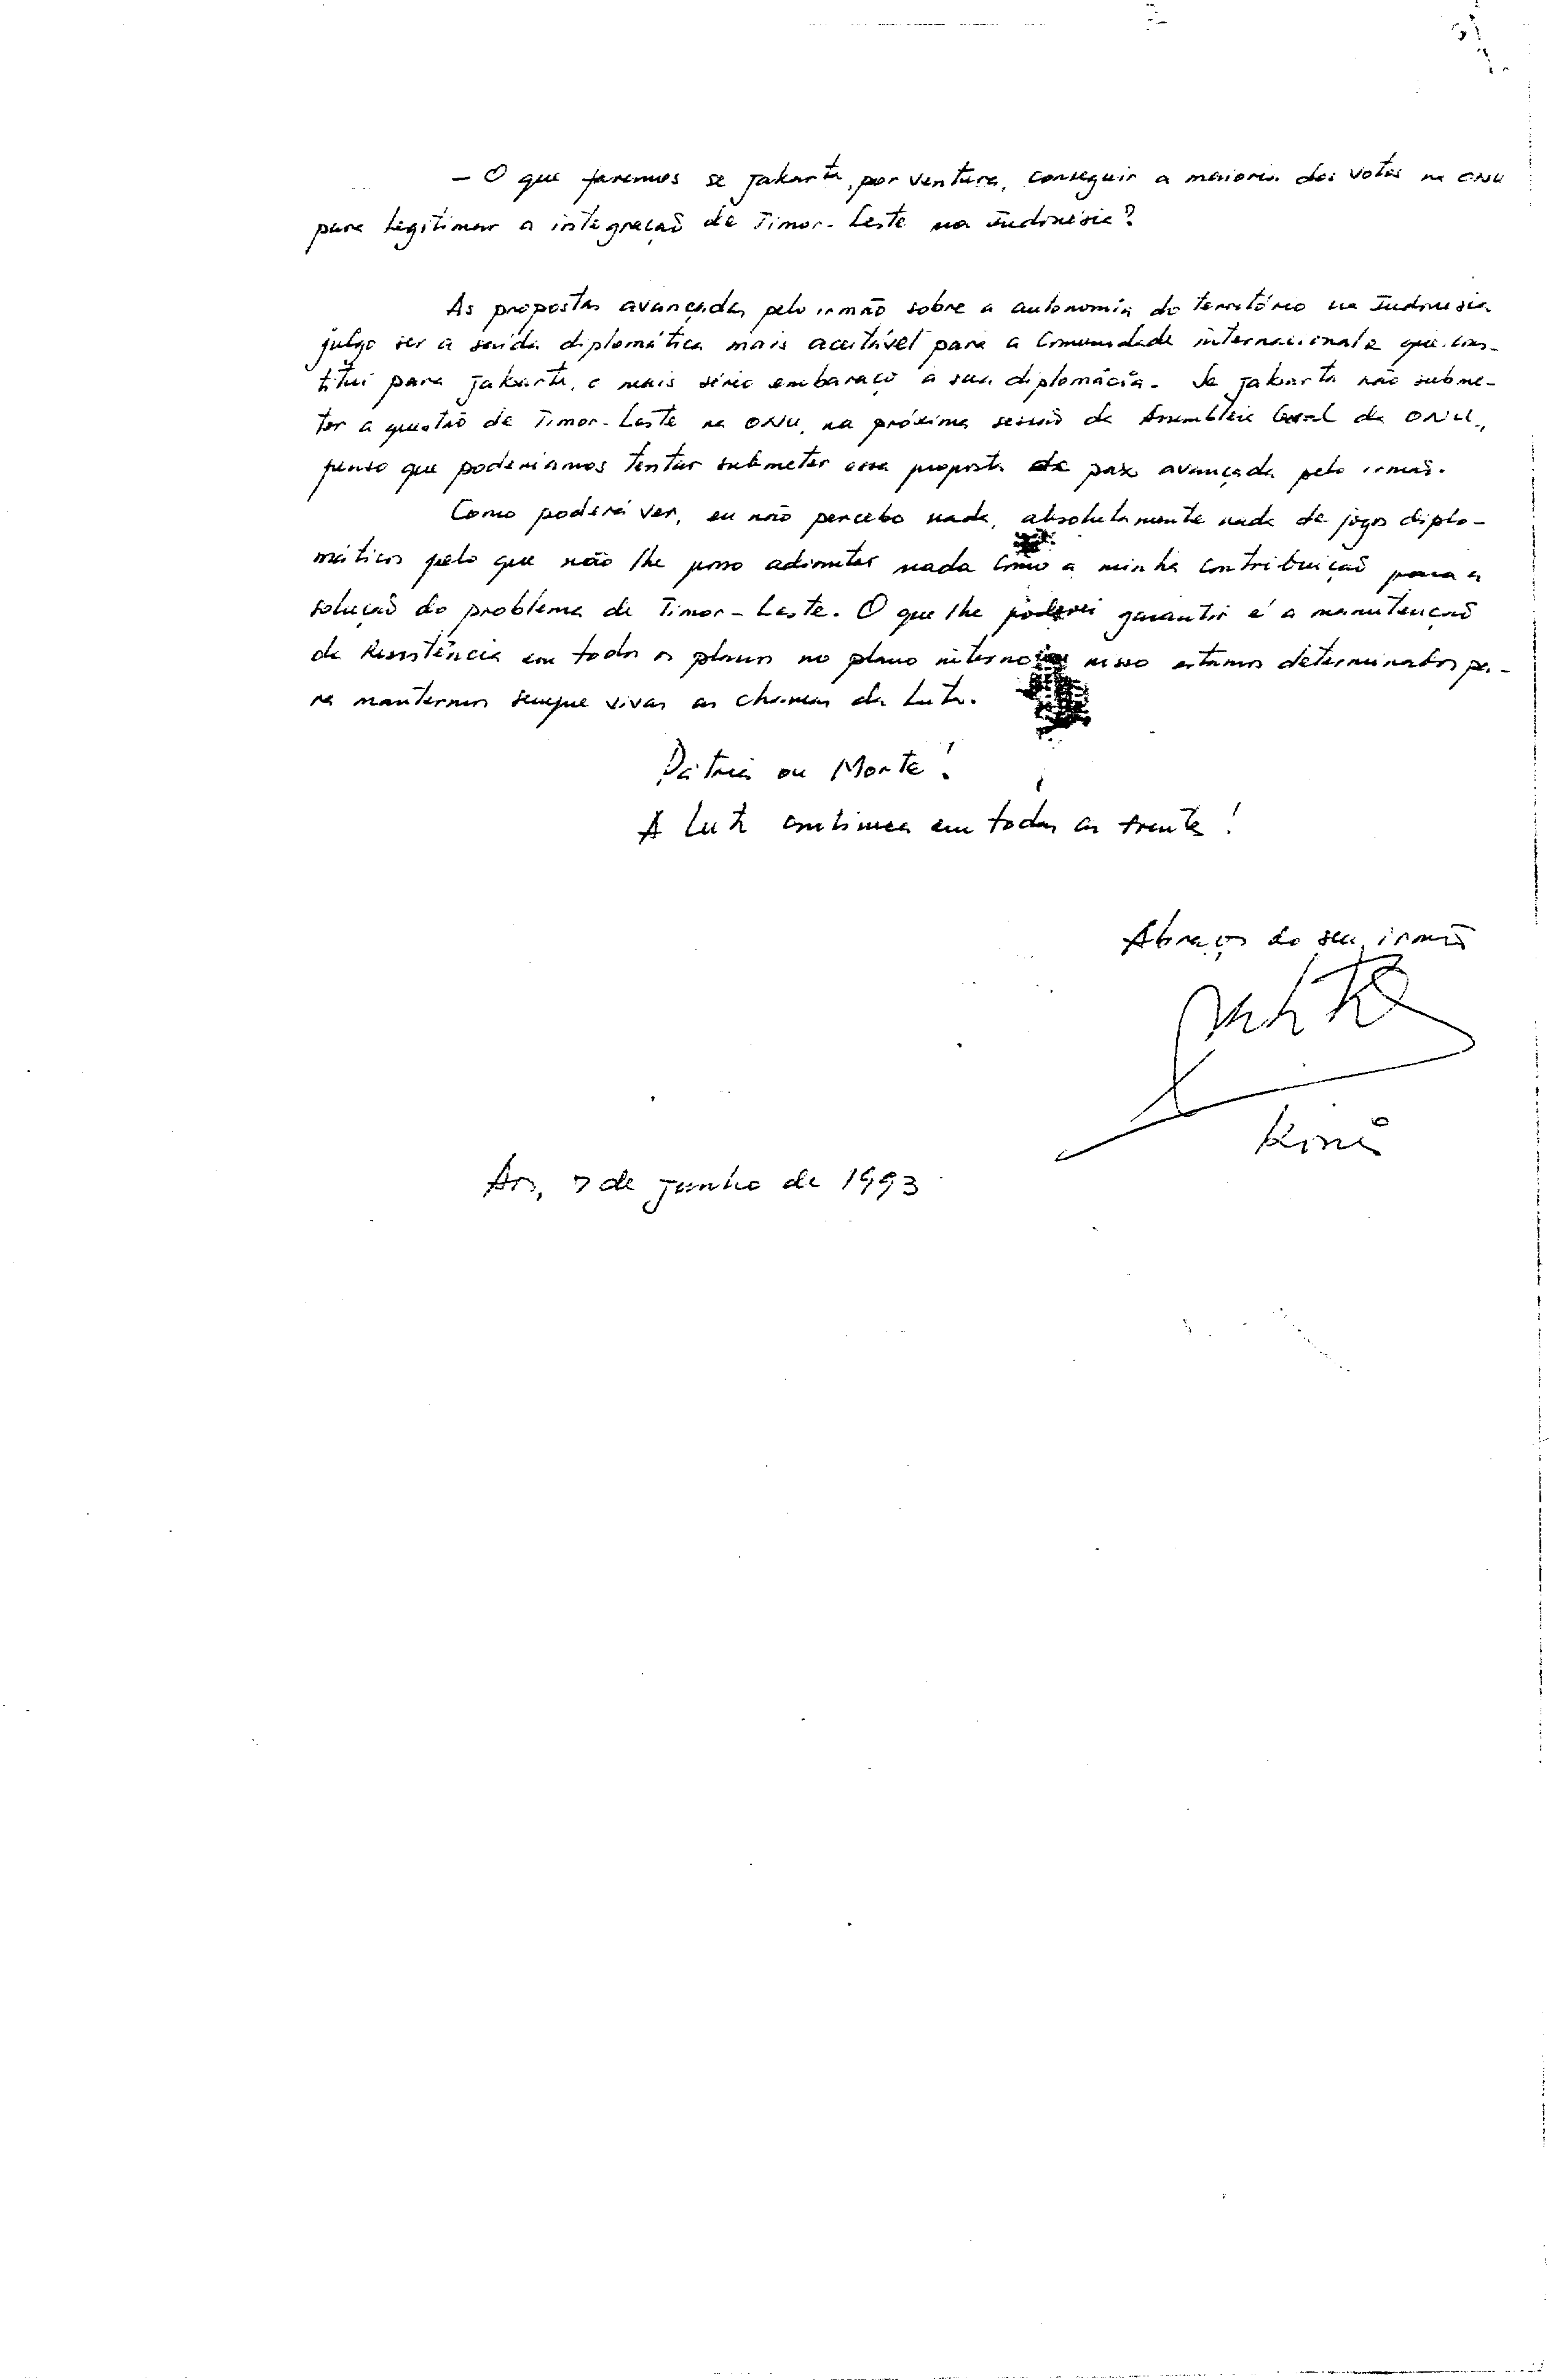 - O que faremos se Jakarta, por ventura, conseguir a maioria dos votos na ONU
para legitimar a integração de Timor-Leste na Indonésia?
As propostas avançadas pelo irmão sobre a autonomia do território na Indonésia
julgo ser a saída diplomática mais aceitável para a Comunidade internacional e que cons-
titui para Jakarta, o mais sério embaraço à sua diplomácia. Se Jakarta não subme-
ter a questão de Timor-Leste na ONU, na próxima sessão da Assembleia Geral da ONU,
penso que poderíamos tentar submeter essa proposta de paz avançada pelo irmão.
Como poderá ver, eu não percebo nada, absolutamente nada de jogos diplo-
máticos pelo que não lhe posso adiantar nada como a minha contribuição para a
solução do problema de Timor-Leste. O que lhe poderei garantir é a manutenção
da Resistência em todos os planos no plano interno nisso estamos determinados pa-
ra mantermos sempre vivas as chamas da Luta.
Pátria ou Morte!
A Luta continua em todas as frentes!
Abraços do seu irmão
Aos, 7 de Junho de 1993